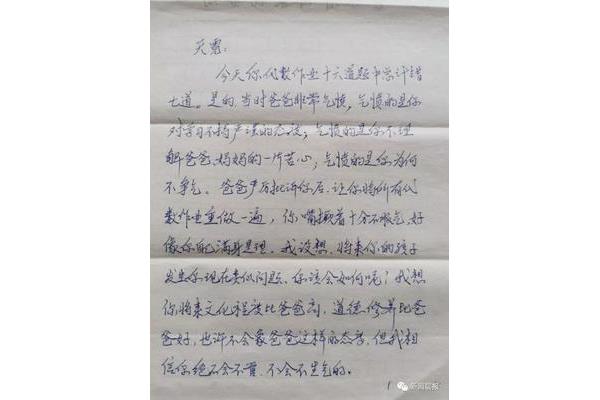 天霓:
今天你代数作业十六道题中总计错
七道。是的,当时爸爸非常气愤,气愤的是你
对学习不持严谨的态度;气愤的是你不理
解爸爸、妈妈的一片苦心;气愤的是你为何
不争气。爸爸严厉批评你后,让你将所有代
数作业重做一遍,你嘴撅着十分不服气,好
像你配满身是理。我设想,将来你的孩子
发生你现在类似问题,你该会如何呢?我想
你将来文化程度比爸爸高,道德修养比爸
爸好,也许不会象爸爸这样的态度,但我相
信你绝不会不管,不会不生气的。
1
新闻晨报